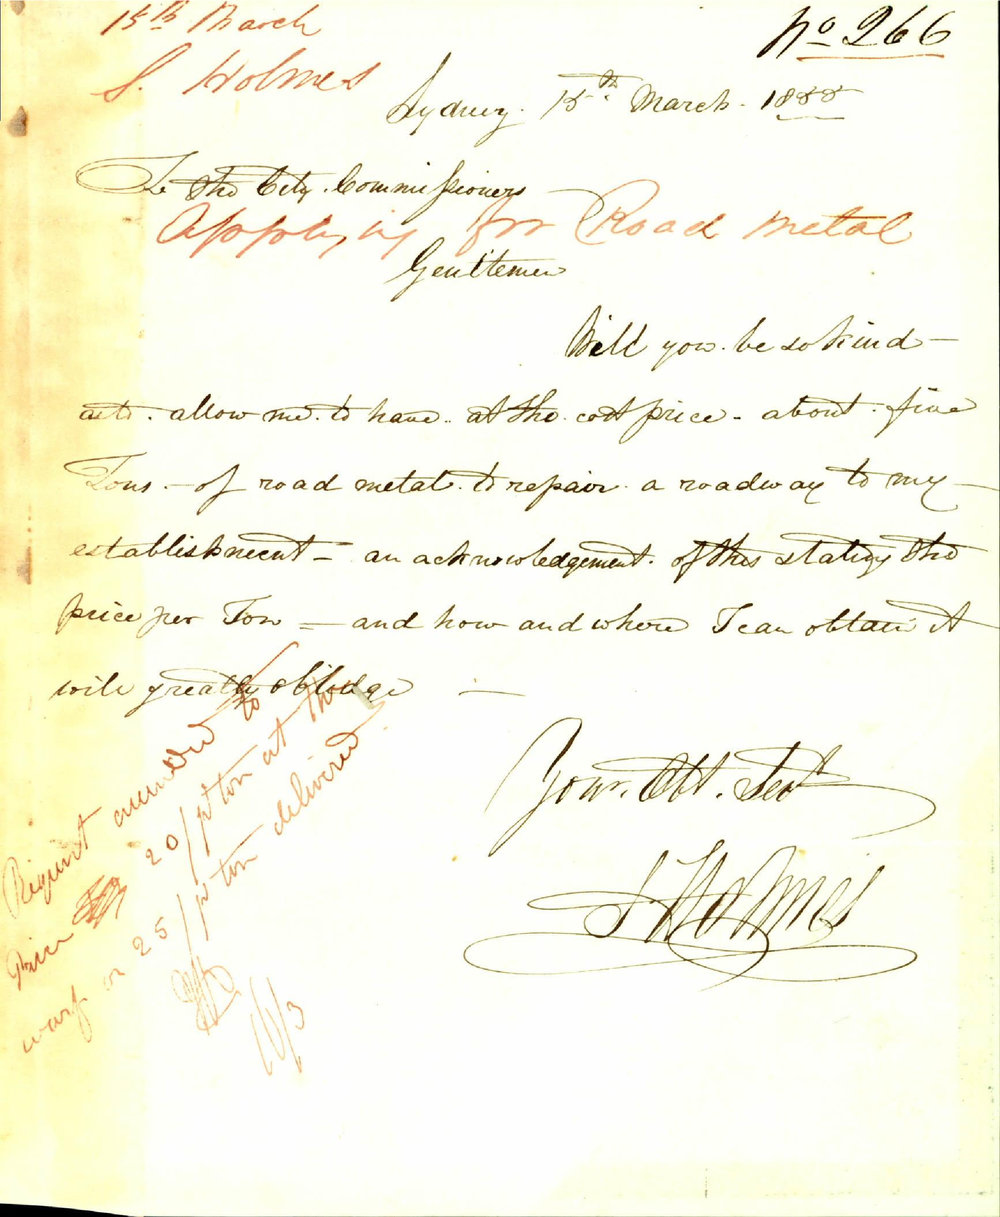 15th March
No 266
S. Holmes
Sydney. 15th March. 1855
To the City Commissioners
Applying for Road Metal
Gentlemen
Will you be so kind —
as to allow me to have at the cost price - about five
Tons - of road metal to repair a roadway to my —
establishment — an acknowledgement of this stating the
price per Ton — and how and where I can obtain it
will greatly oblidge —
Your Obt. Servt
S Holmes
Request acceeded to
Price 20/ pr ton at the
warf or 25/ pr ton delivered
16/3